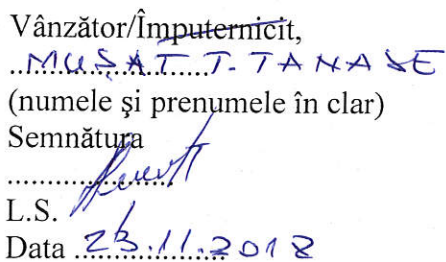 Vânzător/Împuternicit,
MUȘAT T. TANASE
(numele şi prenumele în clar)
Semnătura
L.S.
Data 23.11.2018